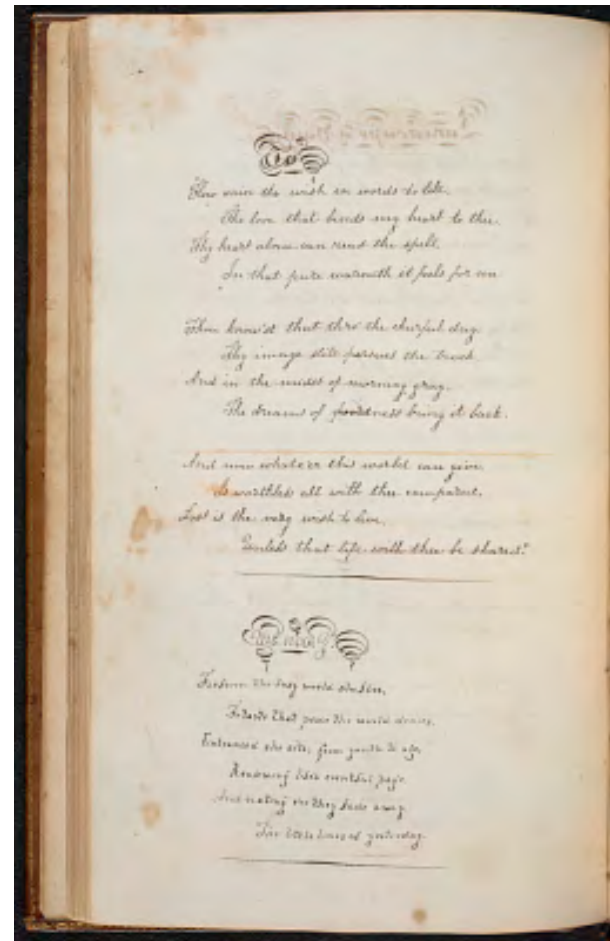 To
How vain the wish in words to tell.
The love that binds my heart to thee.
Thy heart alone can read the spell.
In that pure warmth it feels for me
Thou know'st that thro' the cheerful day
Thy image still pursues the track
And in the midst of morning gray.
The dreams of fondness bring it back.
And now whate'er this world can give.
Is worthless all with thee compared.
Lost is the very wish to live.
Unless that life with thee be shared."
Memory.
the busy world she
that pour the world
Entranced she sits, from youth to age,
Reviewing life's eventful page
And noting ere they fade away
The little lines of yesterday.